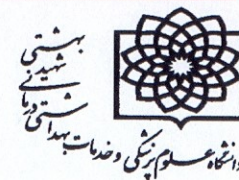 دانشگاه علوم پزشکی و خدمات بهداشتی درمانی شهید بهشتی